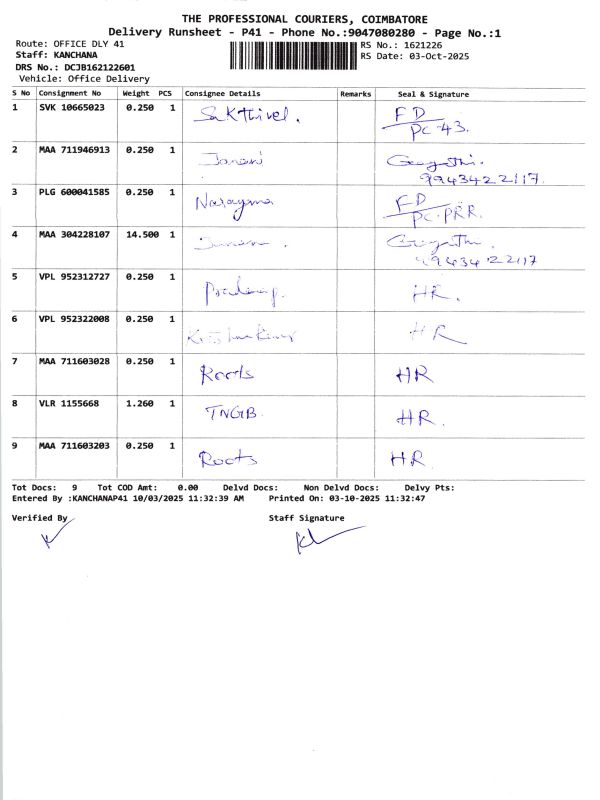 THE PROFESSIONAL COURIERS, COIMBATORE
Delivery Runsheet - P41 - Phone No.:9047080280 - Page No.:1
Route: OFFICE DLY 41 RS No.: 1621226
Staff: KANCHANA RS Date: 03-Oct-2025
DRS No.: DCJB162122601
Vehicle: Office Delivery
S No Consignment No Weight PCS Consignee Details Remarks Seal & Signature
1 SVK 10665023 0.250 1 Sakthivel. FD
PC-43.
2 MAA 711946913 0.250 1 Janani
9943422117.
3 PLG 600041585 0.250 1 Narayana FD
PC-PRR.
4 MAA 304228107 14.500 1
9943422117
5 VPL 952312727 0.250 1 HR.
6 VPL 952322008 0.250 1 HR
7 MAA 711603028 0.250 1 Roots HR
8 VLR 1155668 1.260 1 TNGB. HR.
9 MAA 711603203 0.250 1 Roots HR.
Tot Docs: 9 Tot COD Amt: 0.00 Delvd Docs: Non Delvd Docs: Delvy Pts:
Entered By :KANCHANAP41 10/03/2025 11:32:39 AM Printed On: 03-10-2025 11:32:47
Verified By Staff Signature